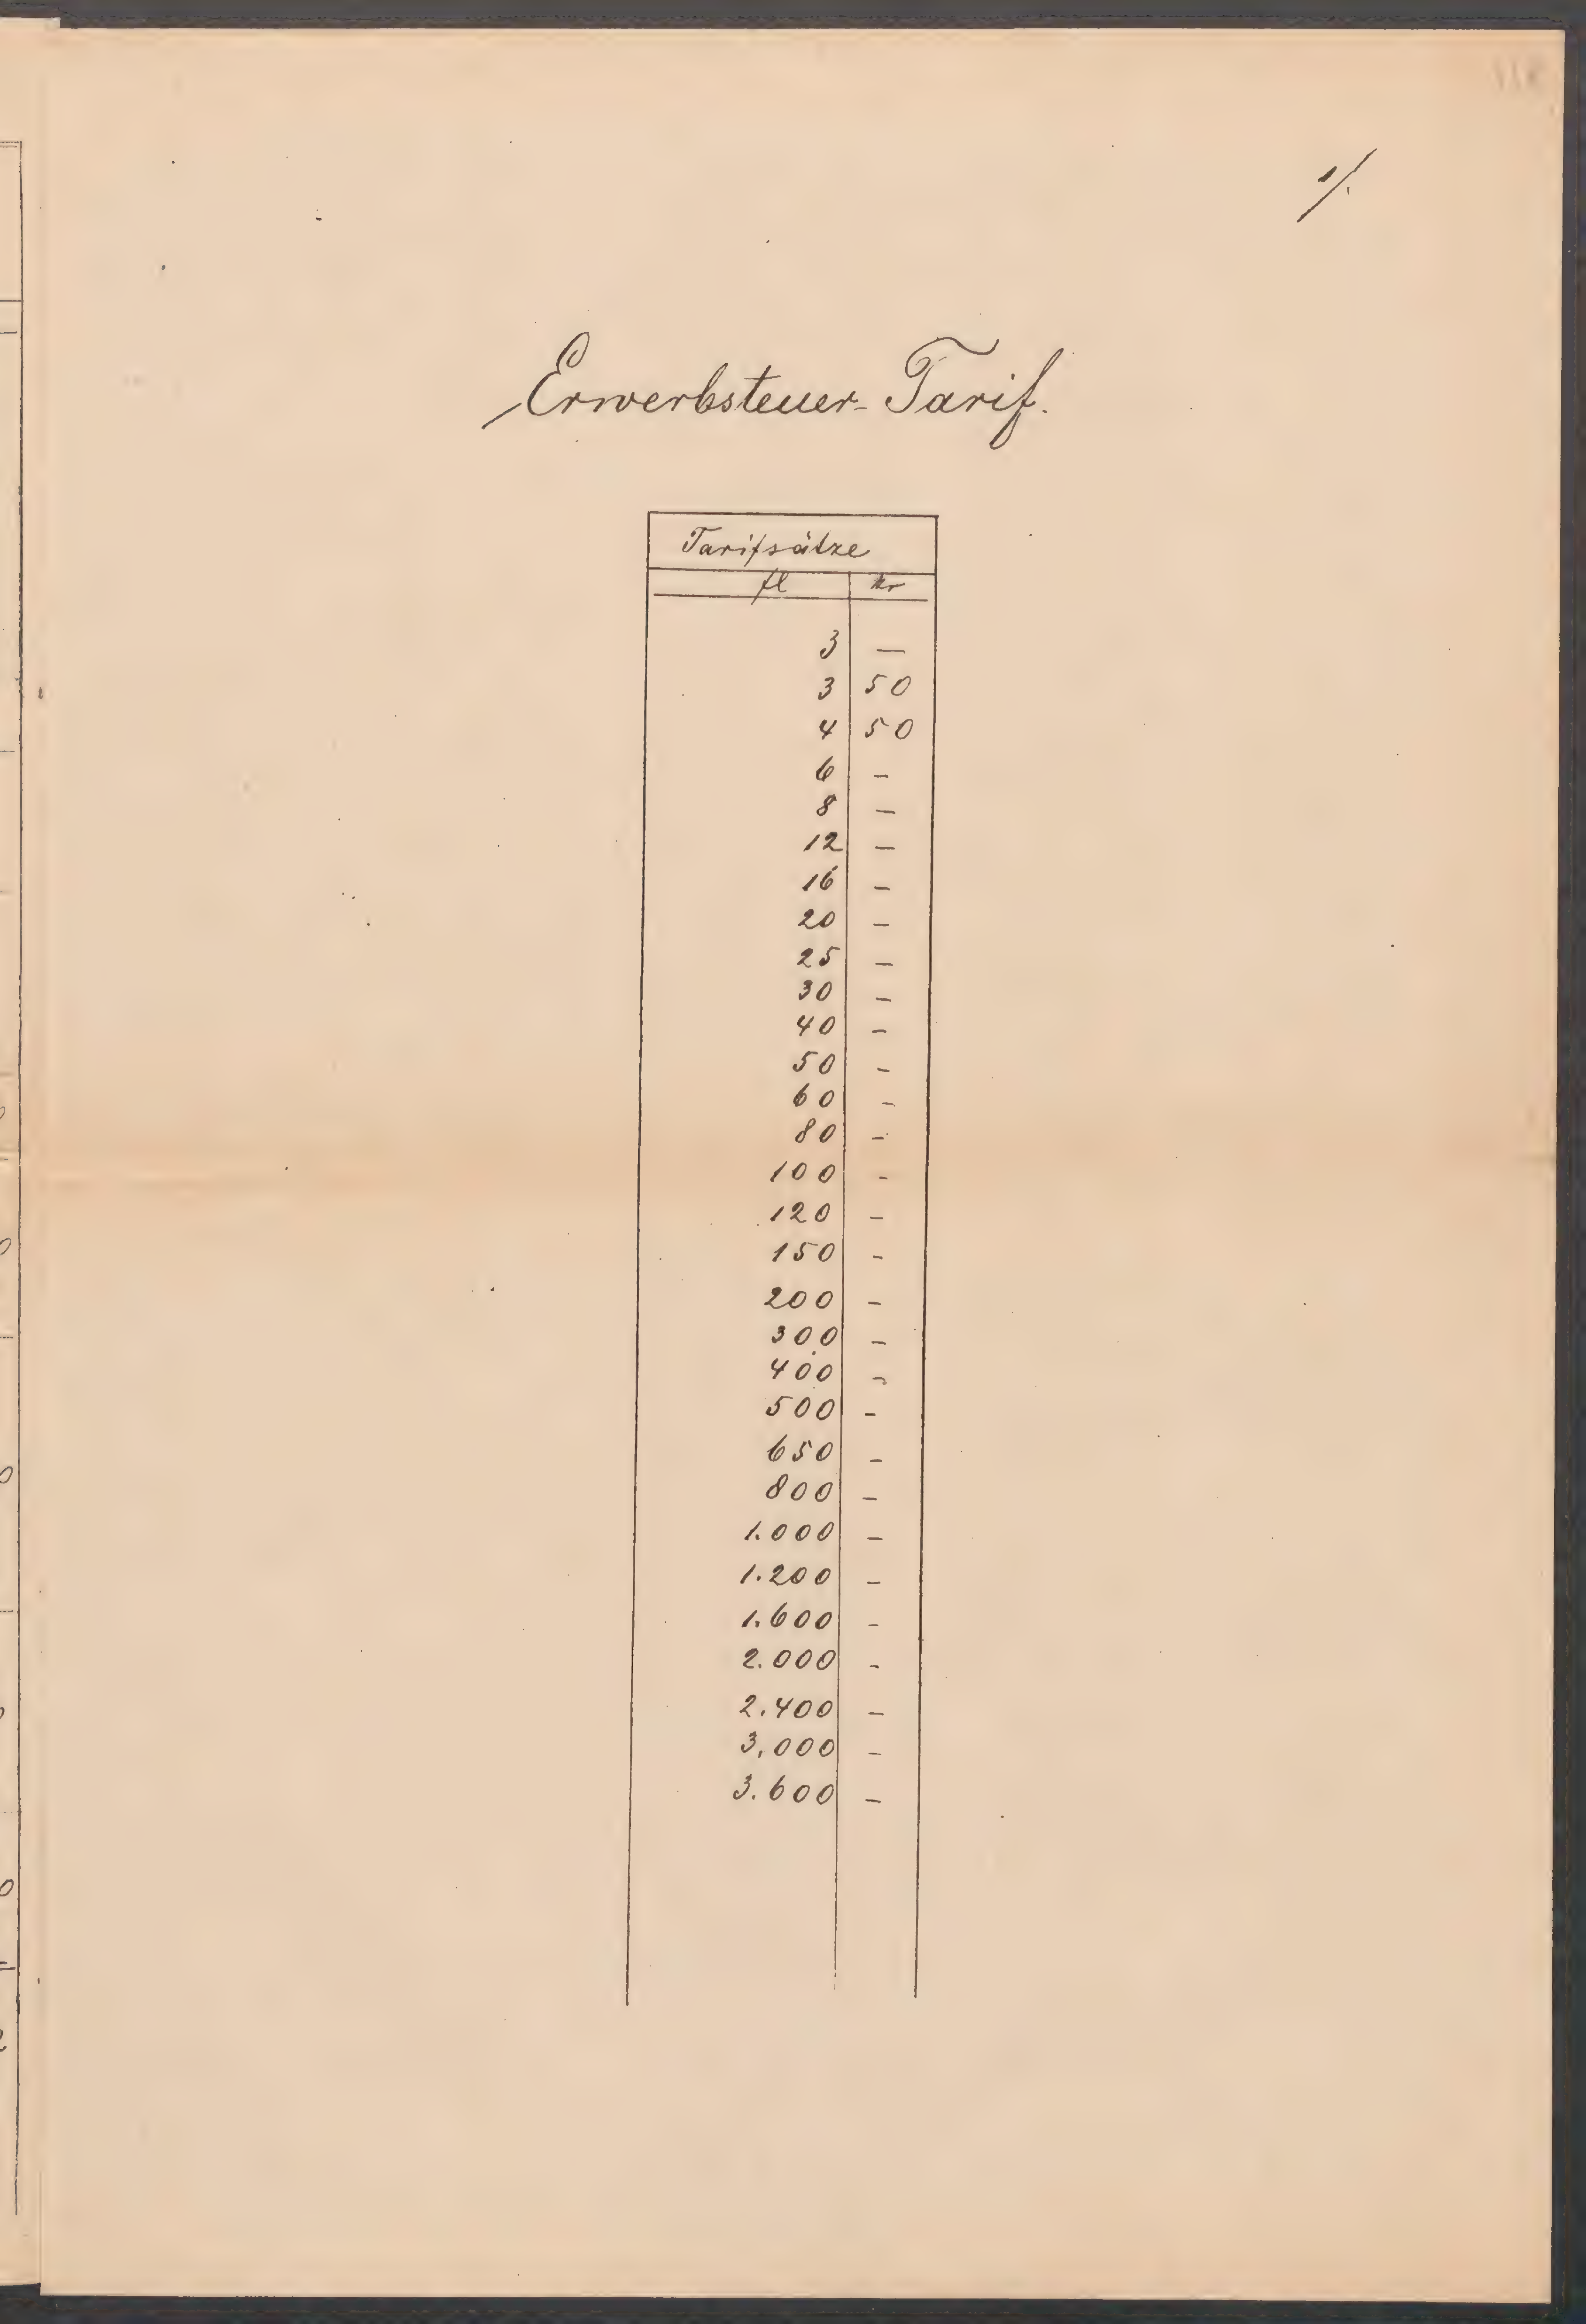 ·/.
Erwerbsteuer-Tarif.
Tarifsätze
fl kr
3 —
3 50
4 50
6 –
8 –
12 –
16 –
20 –
25 –
30 –
40 –
50 –
60 –
80 –
100 –
120 –
150 –
200 –
300 –
400 –
500 –
650 –
800 –
1.000 –
1.200 –
1.600 –
2.000 –
2.400 –
3.000 –
3.600 –